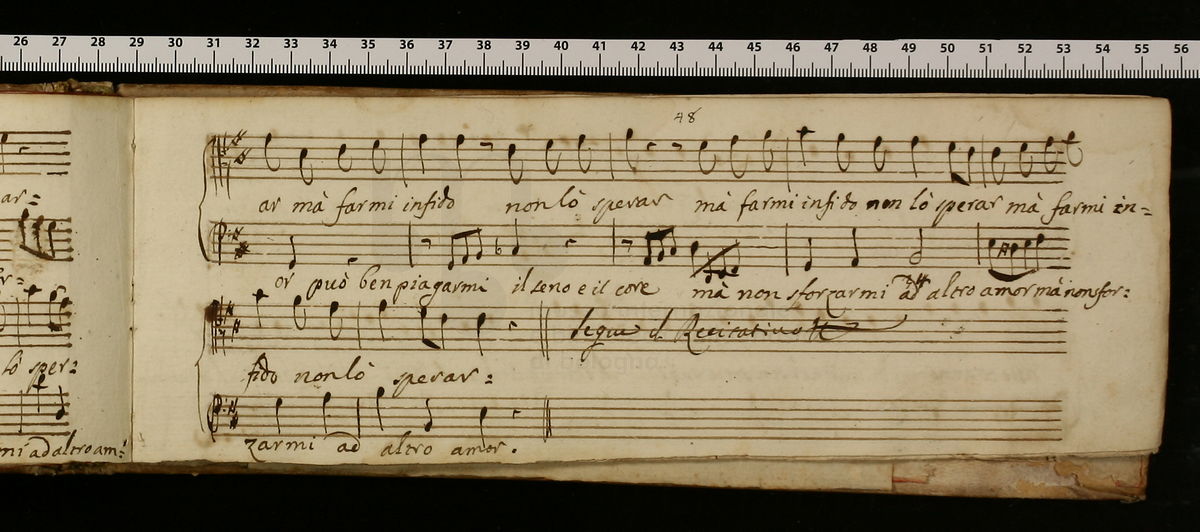 26 27 28 29 30 31 32 33 34 35 36 37 38 39 40 41 42 43 44 45 46 47 48 49 50 51 52 53 54 55 56
48
ar=
ar mà farmi infido non lò sperar mà farmi infido non lò sperar mà farmi in=
or può ben piagarmi il seno e il core mà non sforzarmi ad altro amor mà non sfor:
lò sper:
fido non lò sperar=
Segue il Recitativo
mi ad altro am:
zarmi ad altro amor.